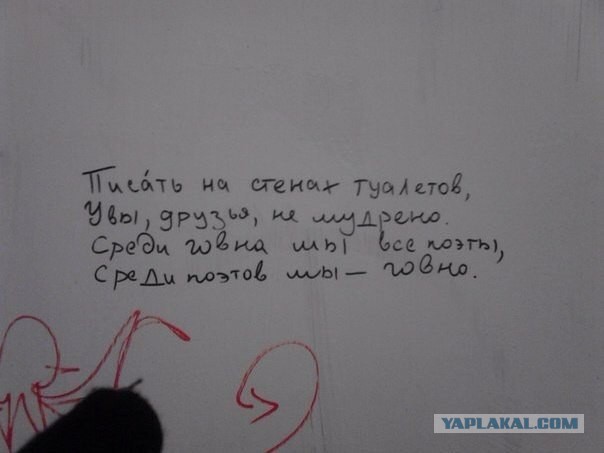 Писа́ть на стенах туалетов,
Увы, друзья, не мудрено.
Среди говна мы все поэты,
Среди поэтов мы — говно.
YAPLAKAL.COM